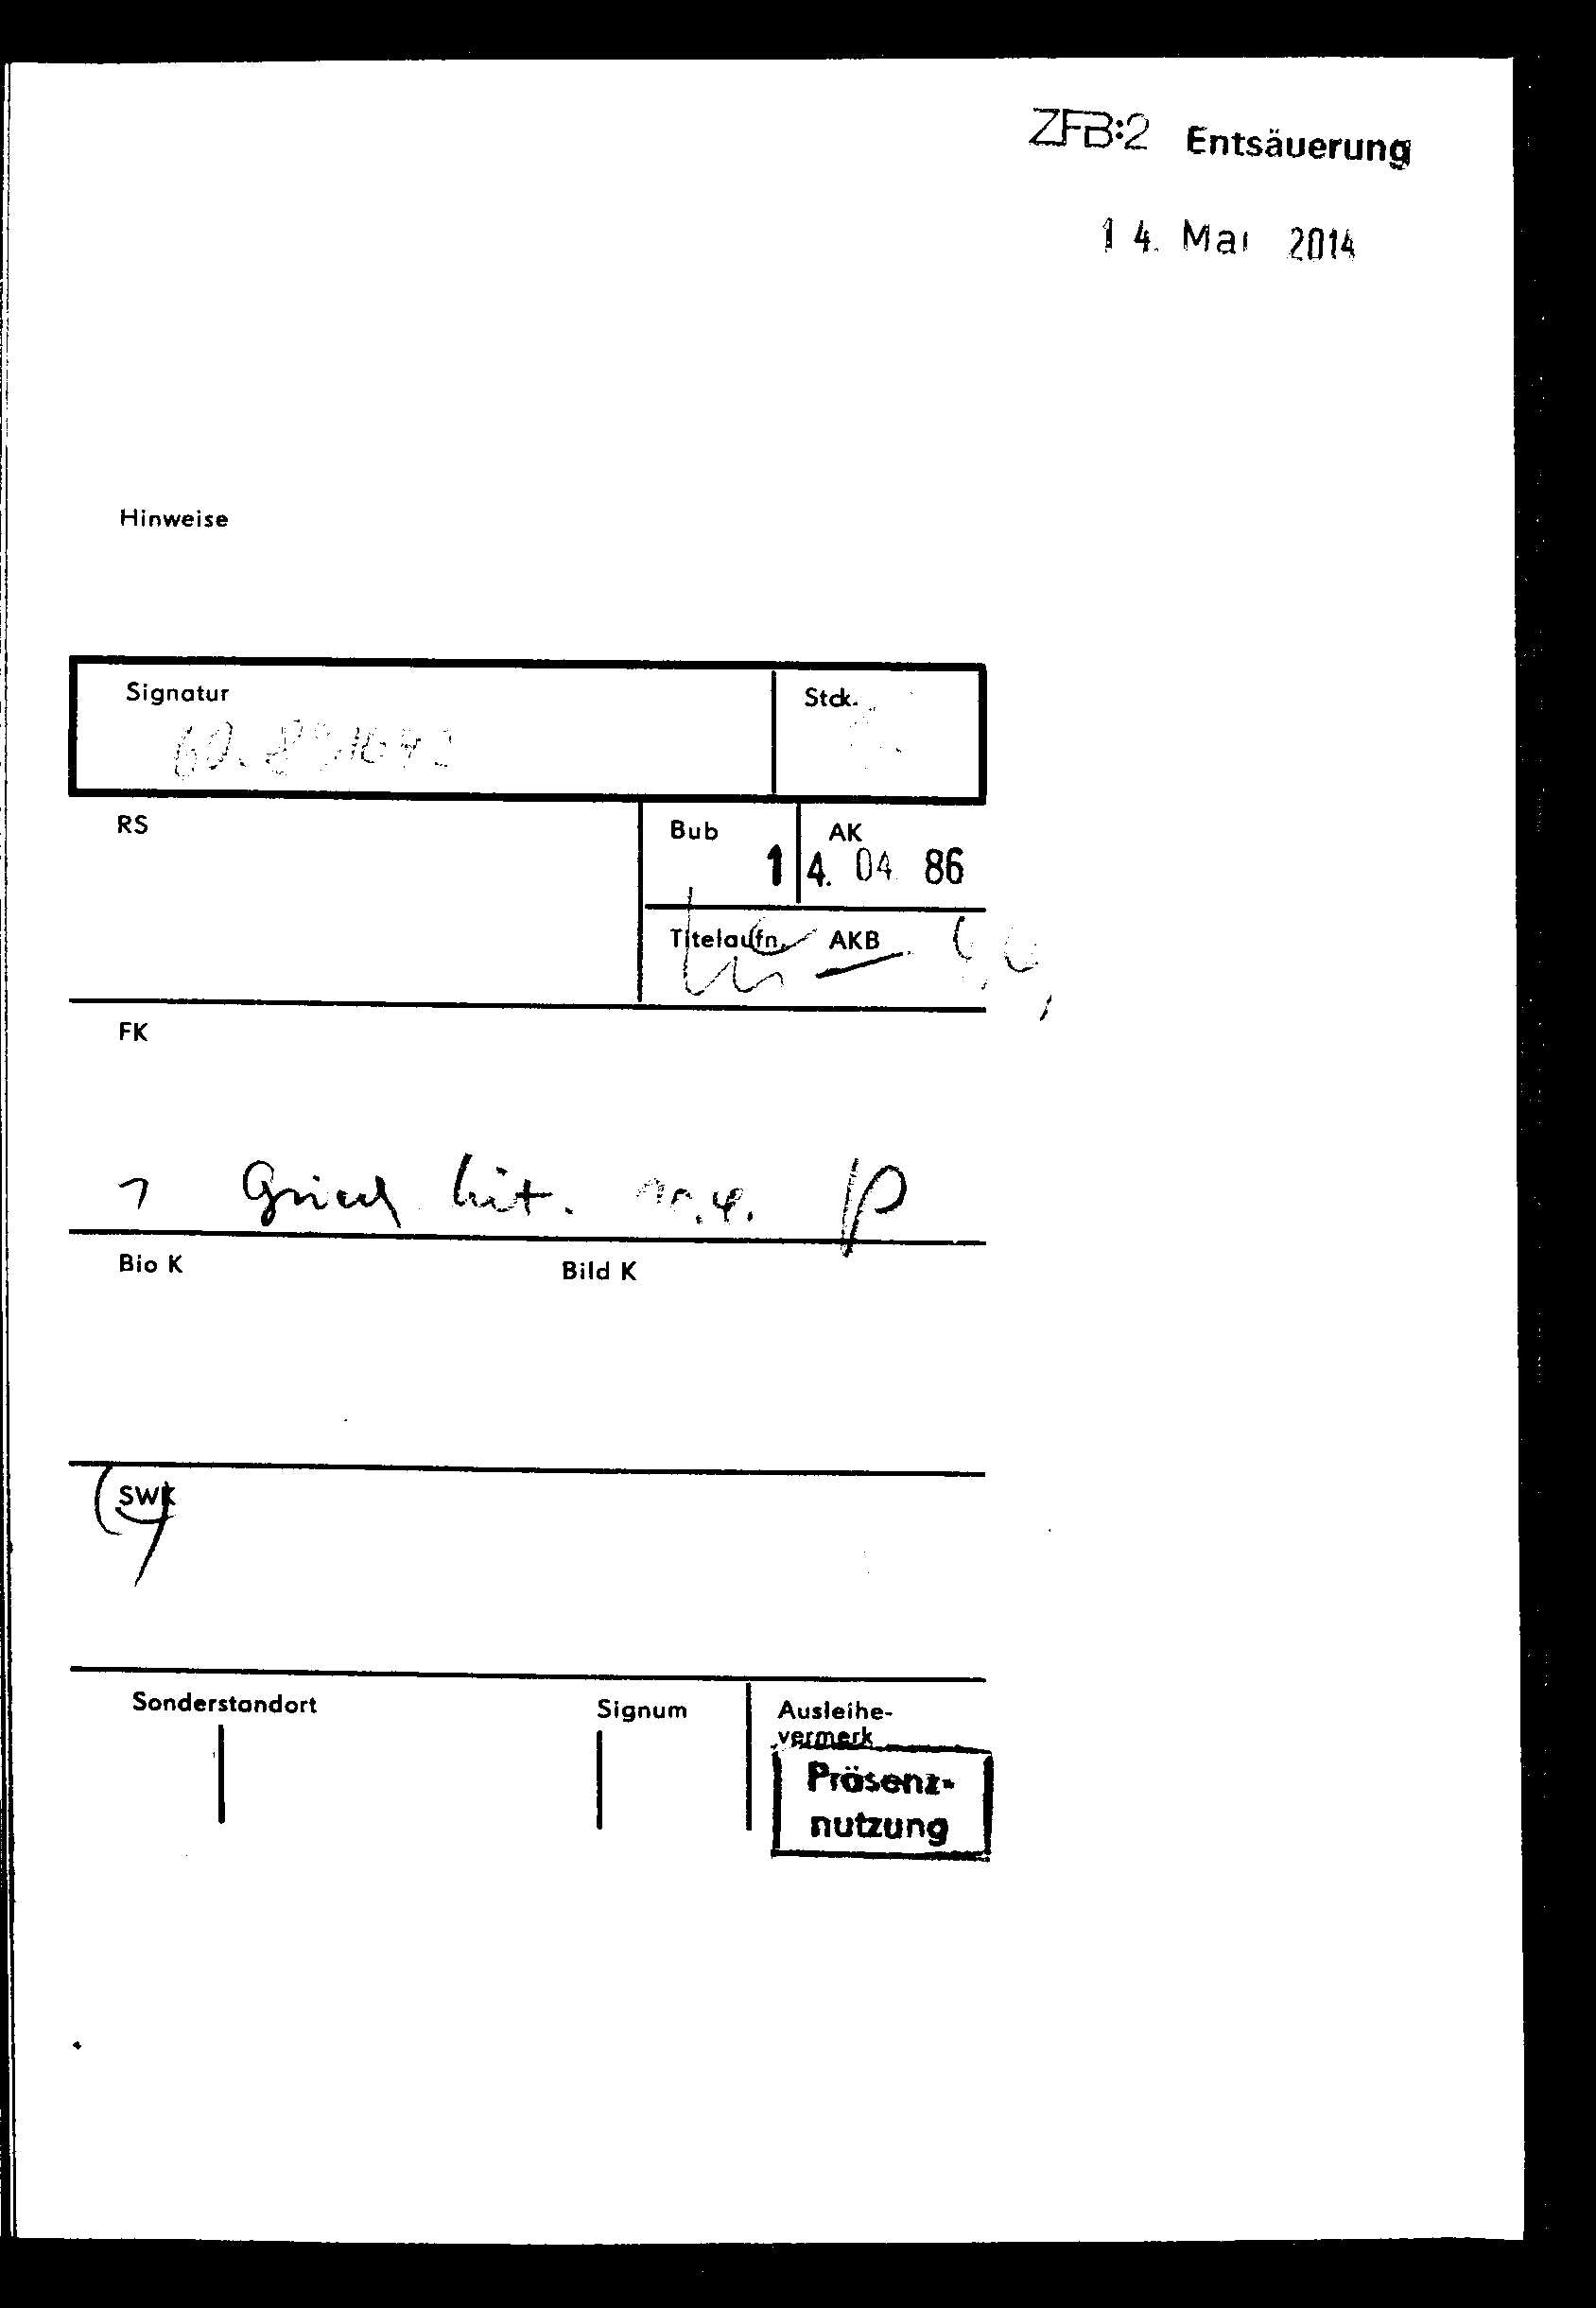 ZFB:2 Entsäuerung
14. Mai 2014
Hinweise
Signatur
Stck.
RS
Bub
AK
14. 04. 86
Titelaufn.
AKB
FK
Griech Lit.
Bio K
Bild K
SWK
Sonderstandort
Signum
Ausleihe-
vermerk
Präsenz-
nutzung